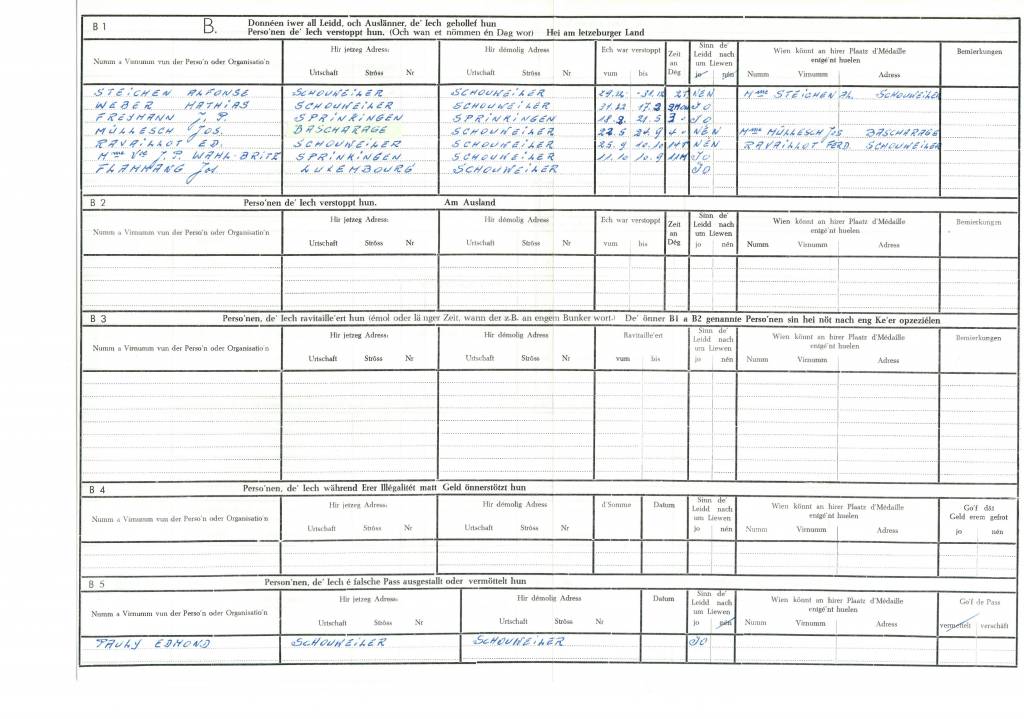 B 1 B. Donnéen iwer all Leidd, och Auslänner, de' Iech gehollef hun
Perso'nen de' Iech verstoppt hun. (Och wan et nömmen én Dag wor) Hei am letzeburger Land
Numm a Virnumm vun der Perso'n oder Organisatio'n Hir jetzeg Adress: Hir démolig Adress Ech war verstoppt Zeit an Dég Sinn de' Leidd nach um Liewen Wien könnt an hirer Plaatz d'Médaille entgé'nt huelen Bemierkungen
Urtschaft Ströss Nr Urtschaft Ströss Nr vum bis jo nén Numm Virnumm Adress
STEICHEN ALFONSE SCHOUWEILER SCHOUWEILER 29.12 -31.12 2T NEN Mme STEICHEN AL. SCHOUWEILER
WEBER MATHIAS SCHOUWEILER SCHOUWEILER 31.12 17.2 JO
FREYMANN J. P. SPRINKINGEN SPRINKINGEN 18.2. 21.5 3 - JO
MÜLLESCH JOS. BASCHARAGE SCHOUWEILER 22.5 24.9 4 - NEN Mme MÜLLESCH JOS BASCHARAGE
RAVAILLOT ED. SCHOUWEILER SCHOUWEILER 25.9 10.10 14T NEN RAVAILLOT FERD. SCHOUWEILER
Mme Vve J.P. WAHL-BRITZ SPRINKINGEN SPRINKINGEN 11.10 10.9 11M JO
FLAMMANG Jos LUXEMBOURG SCHOUWEILER JO
B 2 Perso'nen de' Iech verstoppt hun. Am Ausland
Numm a Virnumm vun der Perso'n oder Organisatio'n Hir jetzeg Adress: Hir démolig Adress Ech war verstoppt Zeit an Dég Sinn de' Leidd nach um Liewen Wien könnt an hirer Plaatz d'Médaille entgé'nt huelen Bemierkungen
Urtschaft Ströss Nr Urtschaft Ströss Nr vum bis jo nén Numm Virnumm Adress
B 3 Perso'nen, de' Iech ravitaille'ert hun (émol oder lä nger Zeit, wann der z.B. an engem Bunker wort.) De' önner B1 a B2 genannte Perso'nen sin hei nöt nach eng Ke'er opzeziélen
Numm a Virnumm vun der Perso'n oder Organisatio'n Hir jetzeg Adress: Hir démolig Adress Ravitaille'ert Sinn de' Leidd nach um Liewen Wien könnt an hirer Plaatz d'Médaille entgé'nt huelen Bemierkungen
Urtschaft Ströss Nr Urtschaft Ströss Nr vum bis jo nén Numm Virnumm Adress
B 4 Perso'nen, de' Iech während Erer Illégalitét matt Geld önnerstötzt hun
Numm a Virnumm vun der Perso'n oder Organisatio'n Hir jetzeg Adress: Hir démolig Adress d'Somme Datum Sinn de' Leidd nach um Liewen Wien könnt an hirer Plaatz d'Médaille entgé'nt huelen Go'f dät Geld erem gefrot
Urtschaft Ströss Nr Urtschaft Ströss Nr jo nén Numm Virnumm Adress jo nén
B 5 Person'nen, de' Iech é falsche Pass ausgestallt oder vermöttelt hun
Numm a Virnumm vun der Perso'n oder Organisatio'n Hir jetzeg Adress: Hir démolig Adress Datum Sinn de' Leidd nach um Liewen Wien könnt an hirer Plaatz d'Médaille entgé'nt huelen Go'f de Pass
Urtschaft Ströss Nr Urtschaft Ströss Nr jo nén Numm Virnumm Adress vermëttelt verschäft
PAULY EDMOND SCHOUWEILER SCHOUWEILER JO